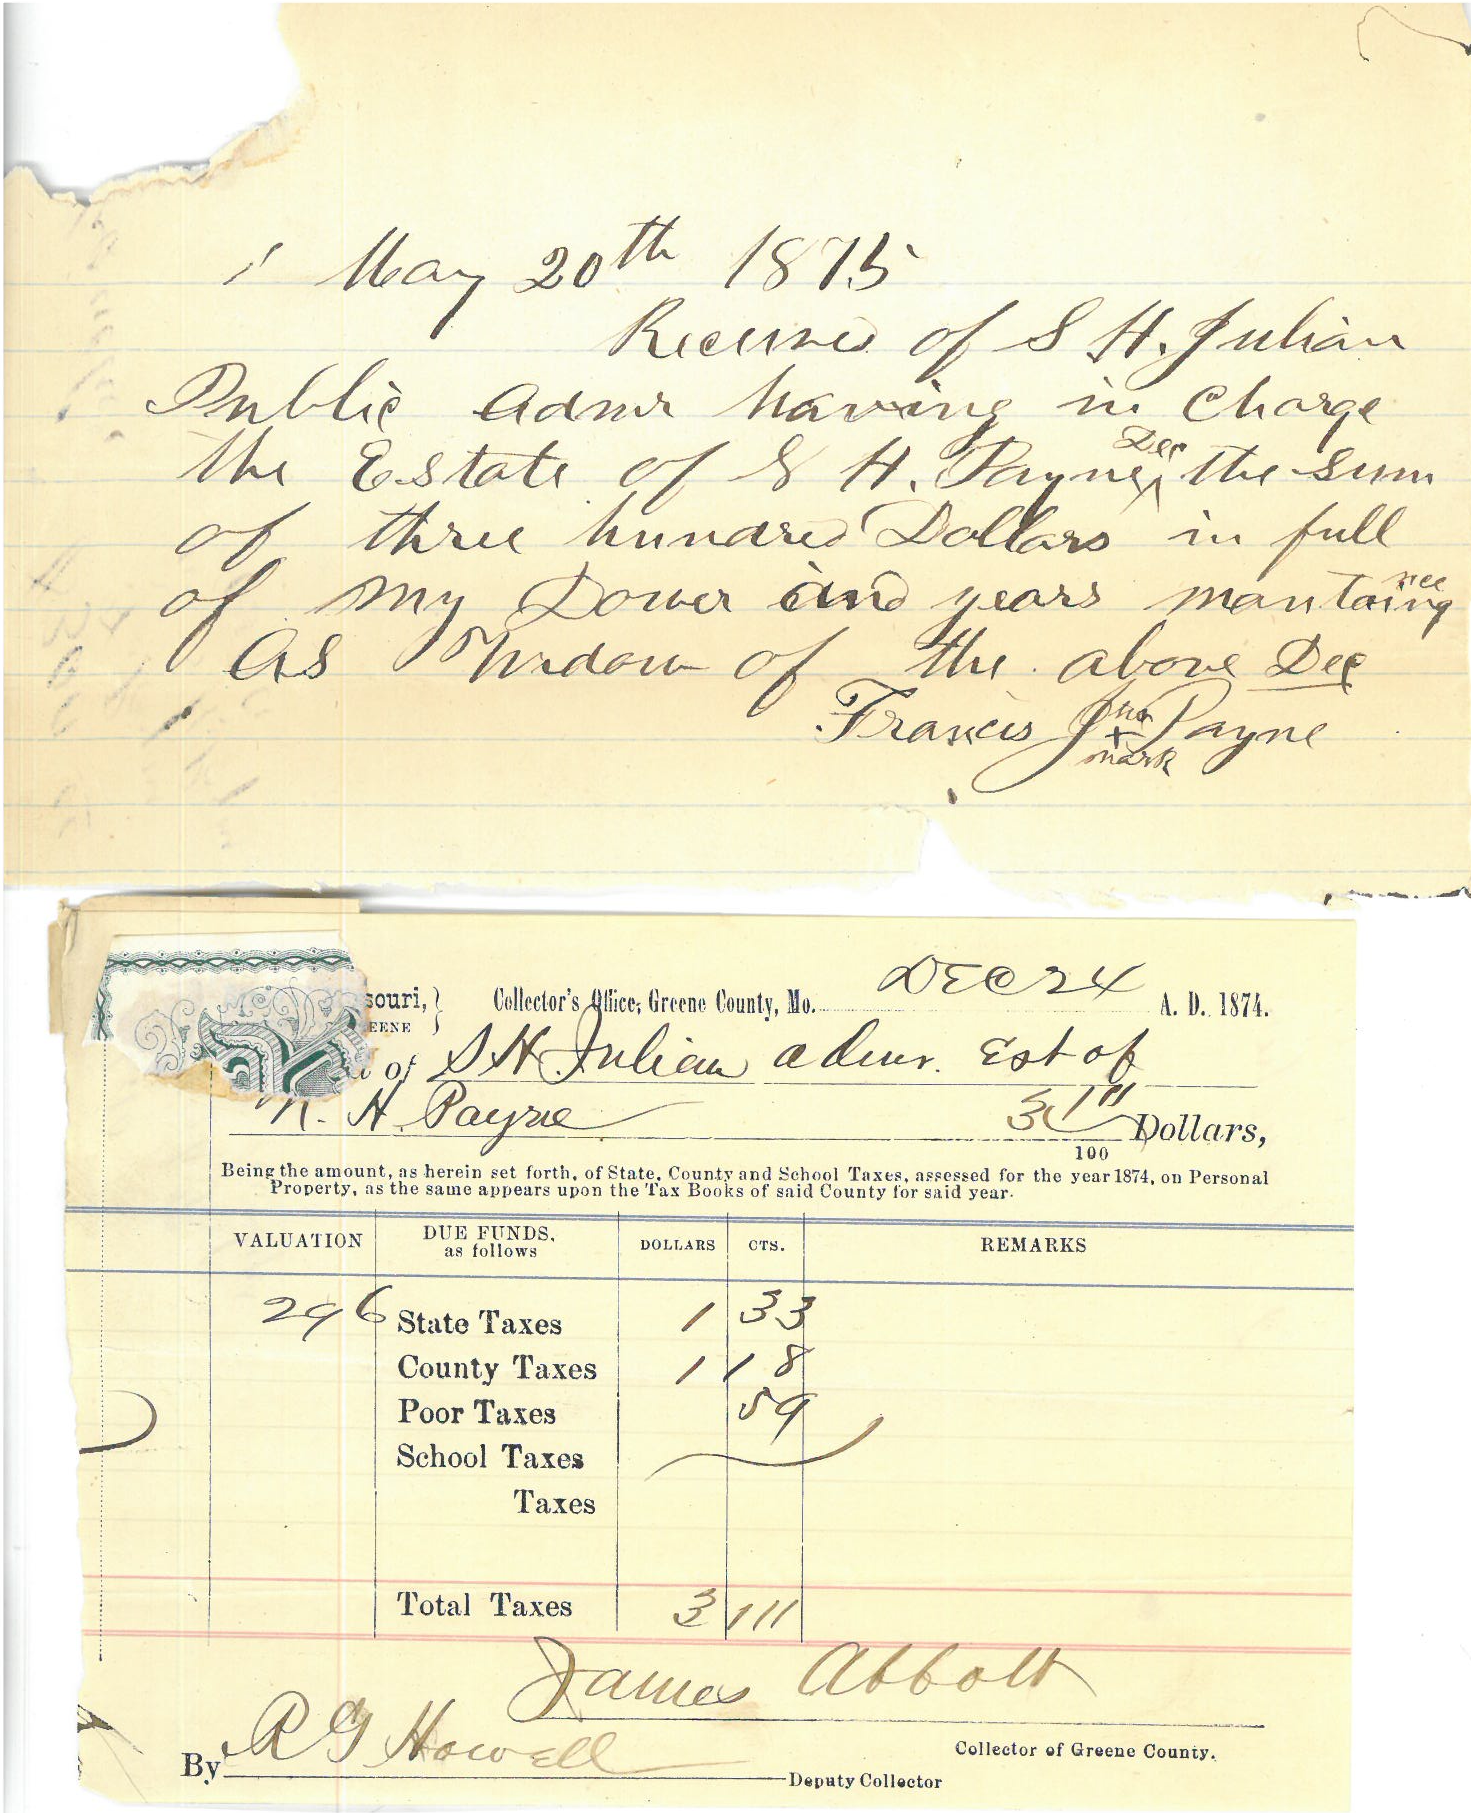 May 20th 1875
Received of S H. Julian
Public Admr having in Charge
the Estate of H. Payne Dec the sum
of three hundred Dollars in full
of my Dower and years mantaingnce
As Widow of the above Dec
Francis J Payne
+
mark
souri, } Collector's Office, Greene County, Mo. DEC 24 A. D. 1874.
EENE
of S H Julian admr. Est of
H. Payne 3 11/100 Dollars,
Being the amount, as herein set forth, of State, County and School Taxes, assessed for the year 1874, on Personal
Property, as the same appears upon the Tax Books of said County for said year.
VALUATION DUE FUNDS, as follows DOLLARS CTS. REMARKS
296 State Taxes 1 33
County Taxes 1 18
Poor Taxes 59
School Taxes
Taxes
Total Taxes 3 11
James Abbott
Collector of Greene County.
By R G Howell
Deputy Collector